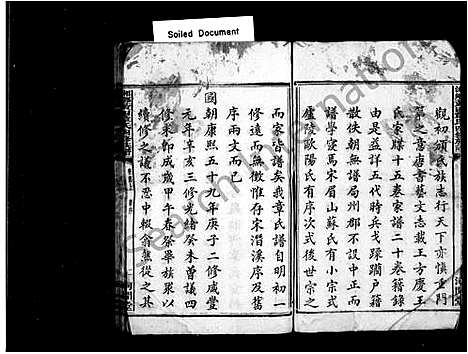 Soiled Document
觀初頒民族志行天下亦慎重門
第之意唐書藝文志載王方慶王
氏家牒十五卷家譜二十卷籍錄
由是益詳五代時兵戈蹂躪戶籍
散佚朝無譜局州郡不設中正而
譜學寖焉宋眉山蘇氏有小宗式
廬陵歐陽氏有序次式後世宗之
而家皆譜矣我章氏譜自明初一
修遠而無徵惟存宋渭溪序及舊
序兩文而已
國朝康熙五十九年庚子二修咸豐
元年辛亥三修光緒癸未曾議四
修未即成歲甲午春祭畢族眾以
續修之議不忍中輟僉慫從之其